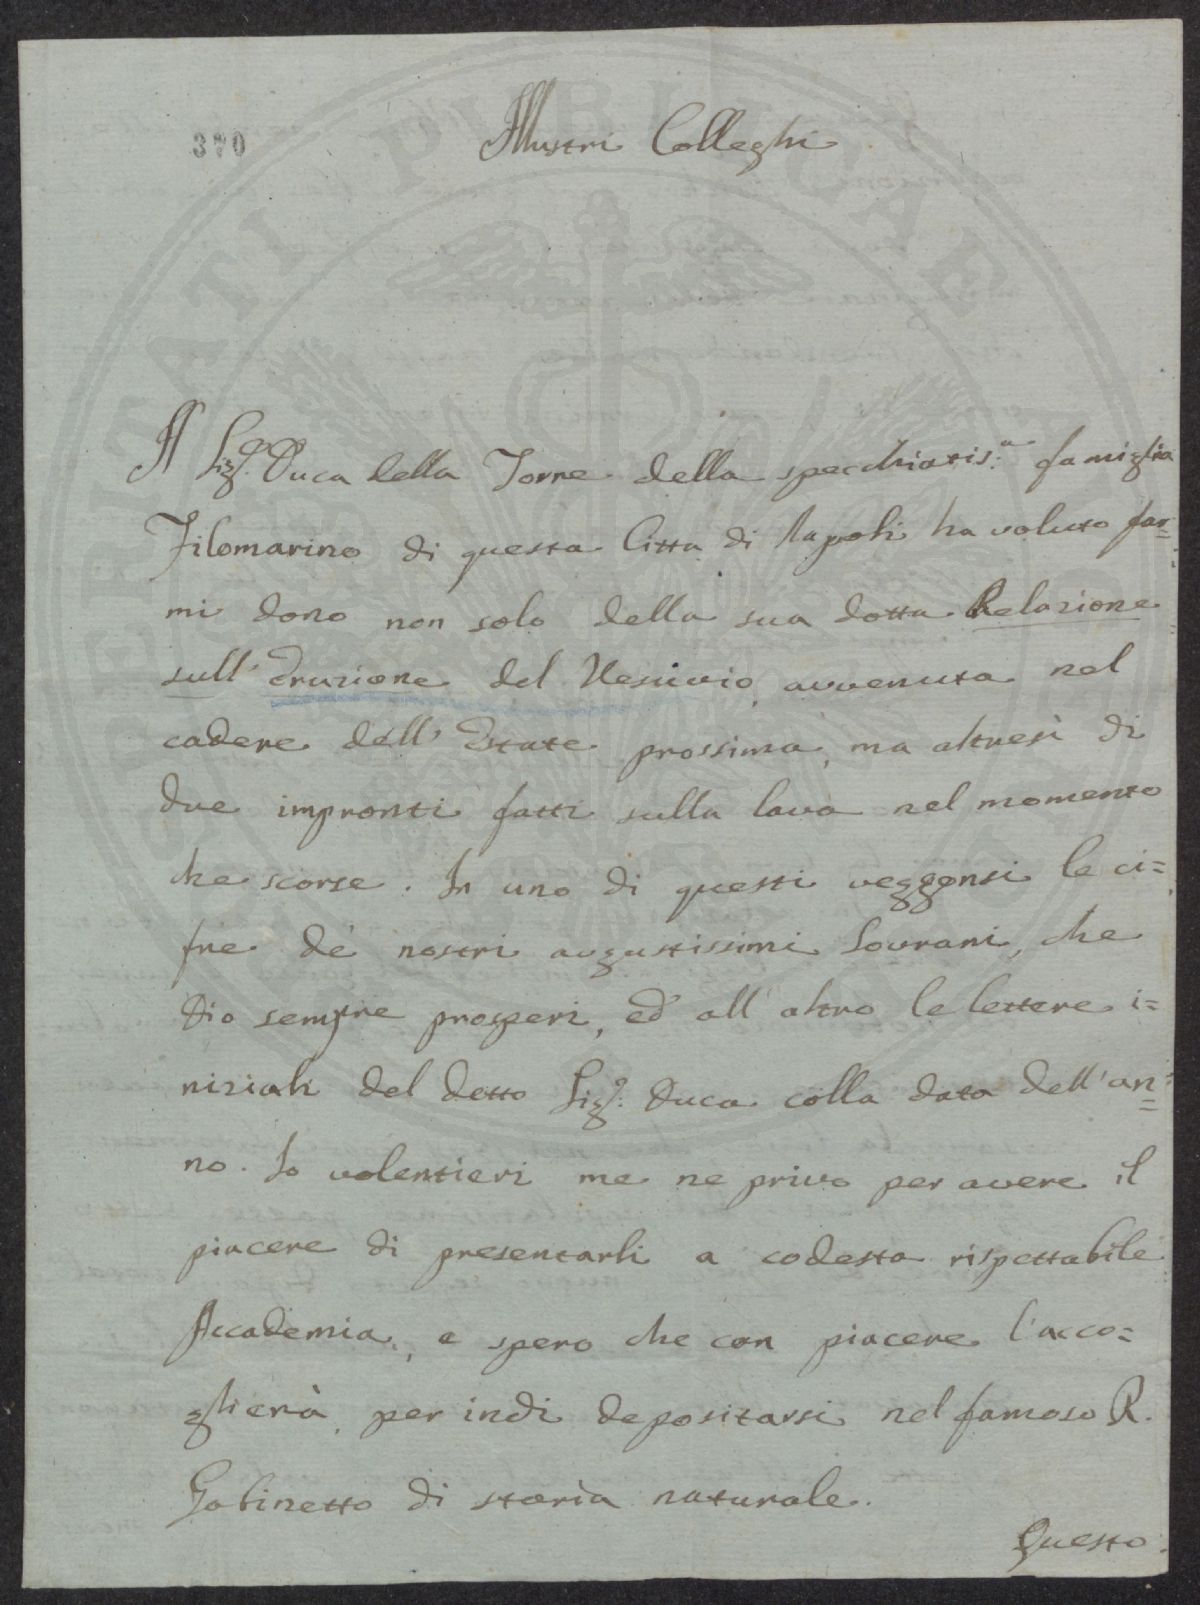 370
Illustri Colleghi
Il Sig.r Duca della Torre della specchiatis.a famiglia
Filomarino di questa Citta di Napoli ha voluto far=
mi dono non solo della sua dotta Relazione
sull' Eruzione del Vesuvio, avvenuta nel
cadere dell' Estate prossima, ma altresì di
due impronti fatti sulla lava nel momento
che scorse. In uno di questi veggonsi le ci=
fre de' nostri augustissimi Sovrani, che
Dio sempre prosperi, ed all' altro le lettere i=
niziali del detto Sig.r Duca colla data dell' an=
no. Io volentieri me ne privo per avere il
piacere di presentarli a codesta rispettabile
Accademia, e spero che con piacere l'acco=
glierà, per indi depositarsi nel famoso R.
Gabinetto di storia naturale.
Questo